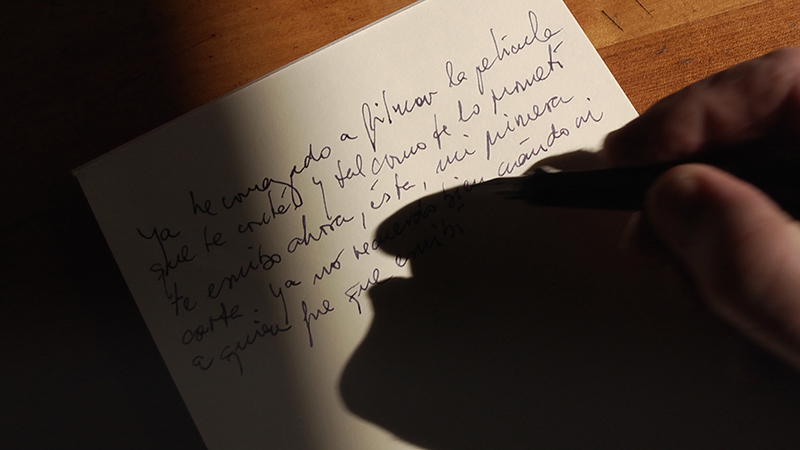 Ya he comenzado a filmar la película
que te conté, y tal como te lo prometí
te escribo ahora, ésta, mi primera
carta. ya no recuerdo bien cuándo ni
a quien fue que escribí